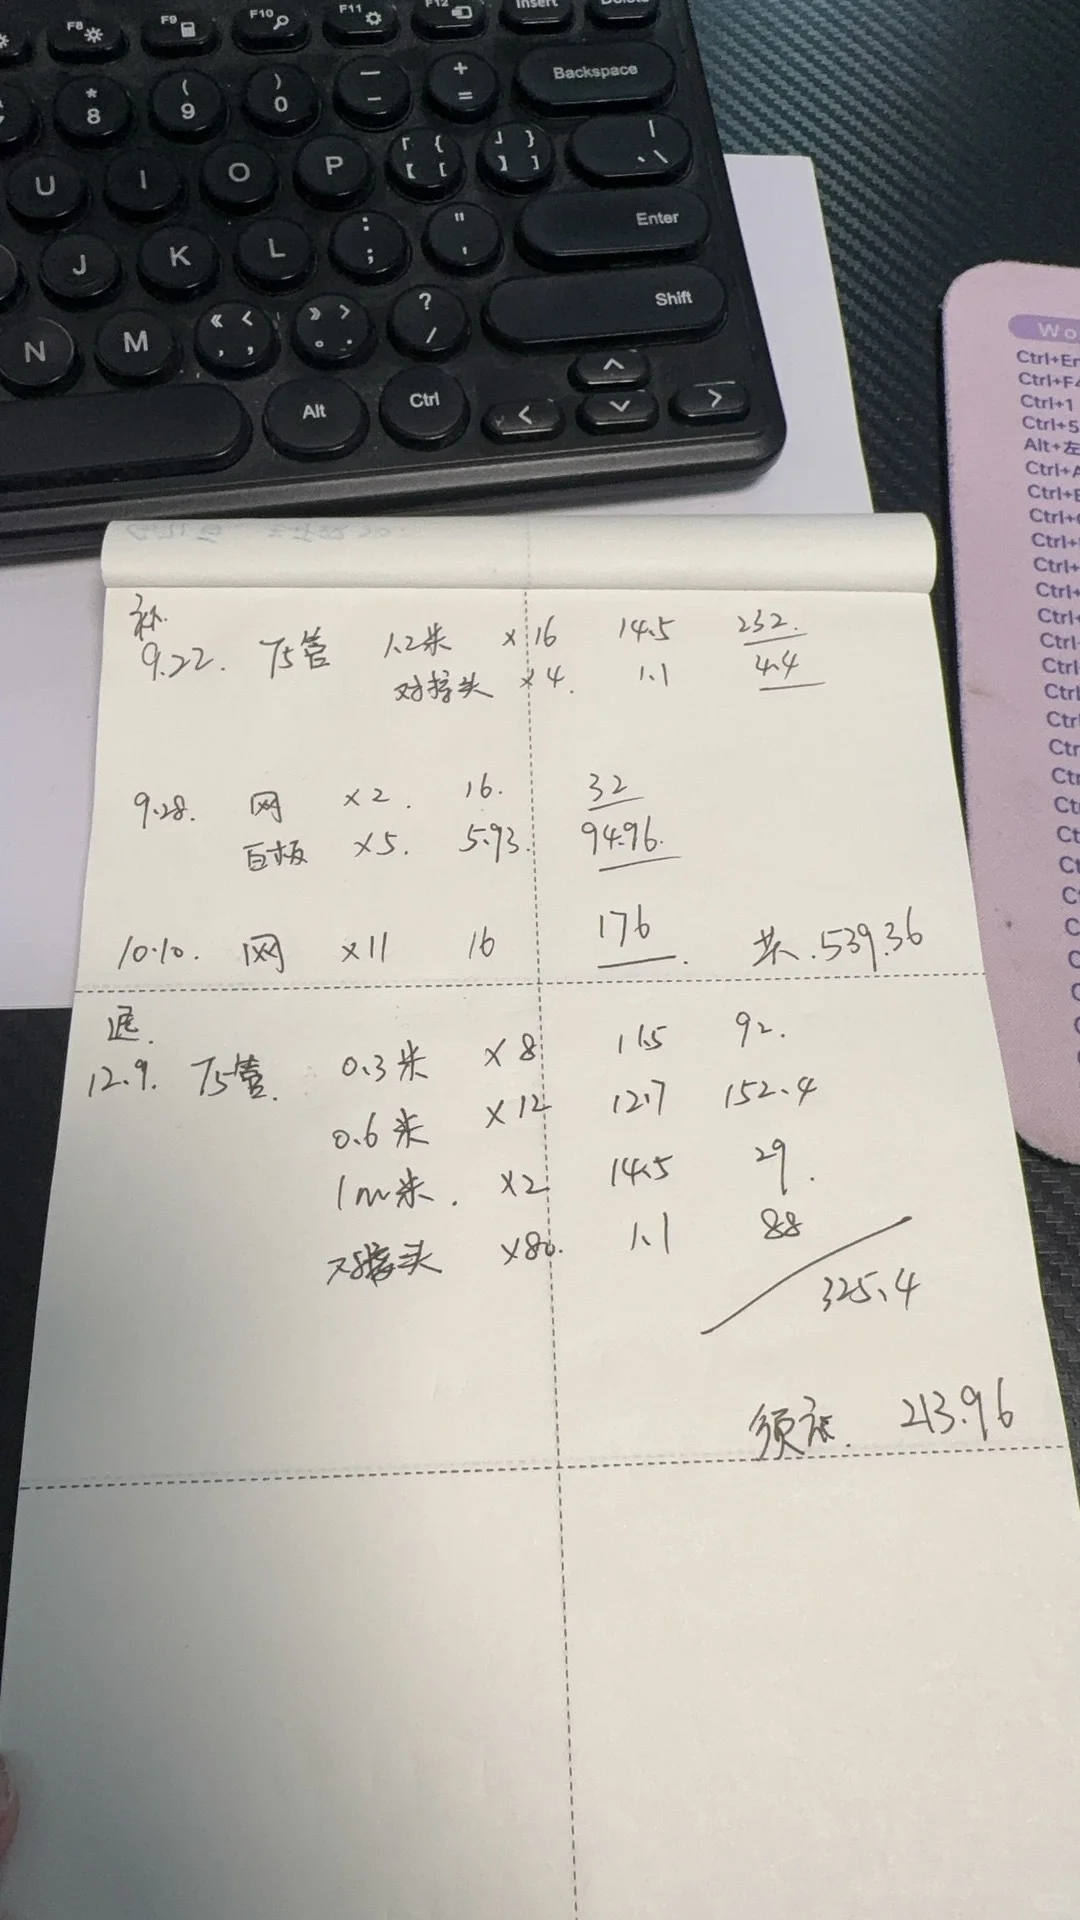 F8 F9 F10 F11 F12 Insert Delete
* 8 ( 9 ) 0 — - + = Backspace
U I O P 「 { 【 [ 」 } 】 ] | 、 \
J K L : ; " ' Enter
N M 《 < , , 》 > 。 . ? / Shift
Alt Ctrl
Wo
Ctrl+En
Ctrl+F4
Ctrl+1
Ctrl+5
Alt+左
Ctrl+A
Ctrl+B
补.
9.22. 75管 1.2米 ×16 14.5 232.
对接头 ×4. 1.1 4.4
9.28. 网 ×2. 16. 32
百板 ×5. 5.93. 94.96.
10.10. 网 ×11 16 176. 共.539.36
退.
12.9. 75管. 0.3米 ×8 11.5 92.
0.6米 ×12 12.7 152.4
1m米. ×2 14.5 29.
对接头 ×80. 1.1 88
325.4
须补. 213.96